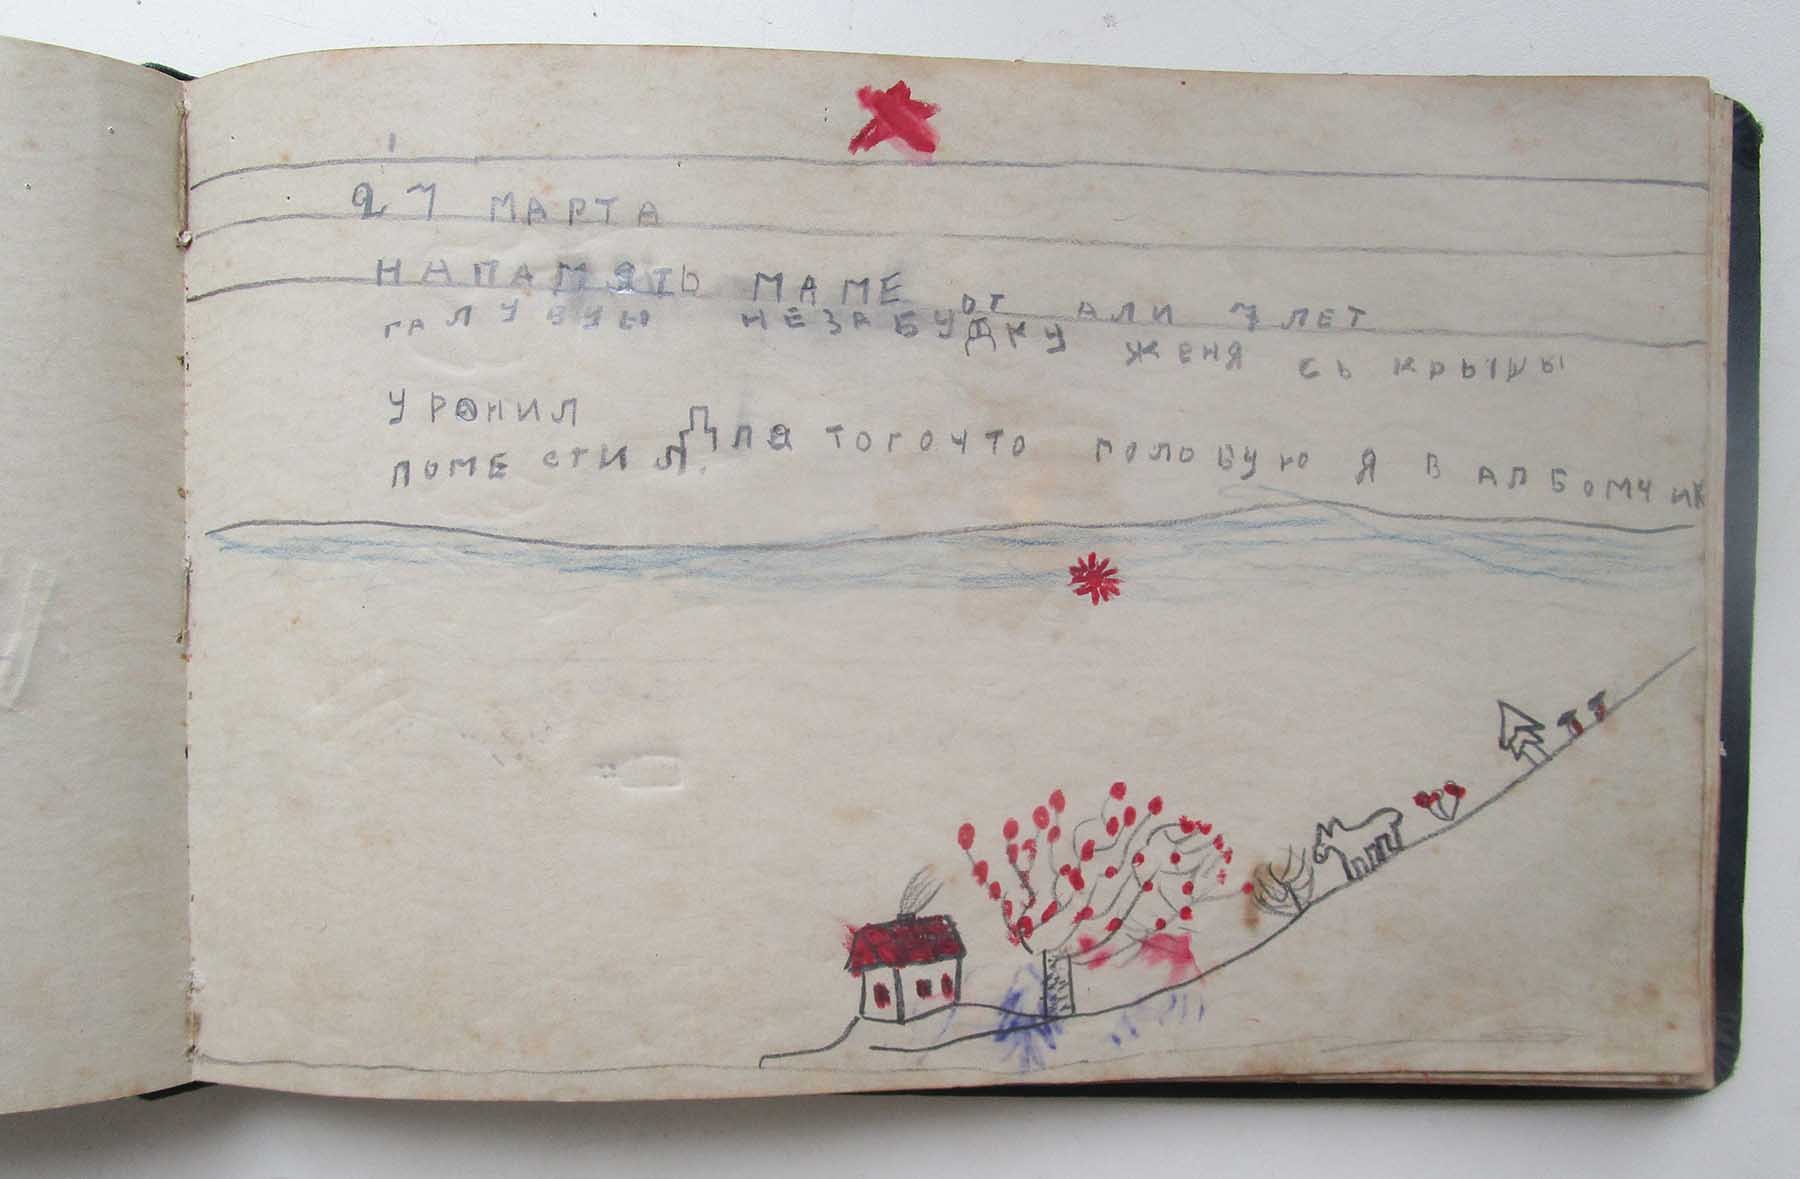 27 МАРТА
НАПАМЯТЬ МАМЕ ОТ АЛИ 7 ЛЕТ
ГАЛУБУЮ НЕЗАБУДКУ ЖЕНЯ СЬ КРЫШЫ
УРОНИЛ ДЛЯ ТОГОЧТО ГОЛОВУЮ Я В АЛБОМЧИК
ПОМЕСТИЛ.